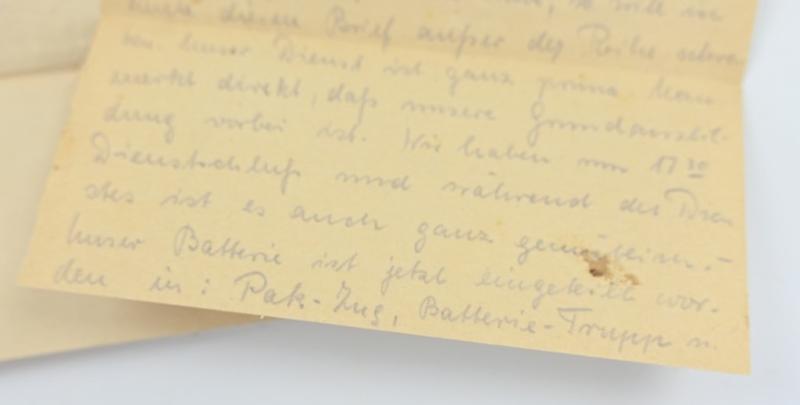 will in
diesen Brief außer der Reihe schrei
ben. Unser Dienst ist ganz prima. Man
merkt direkt, daß unsere Grundausbil-
dung vorbei ist. Wir haben um 17³⁰
Dienstschluß und während des Dien
stes ist es auch ganz gemütlich. –
Unser Batterie ist jetzt eingeteilt wor-
den in: Pak-Zug, Batterie-Trupp u.